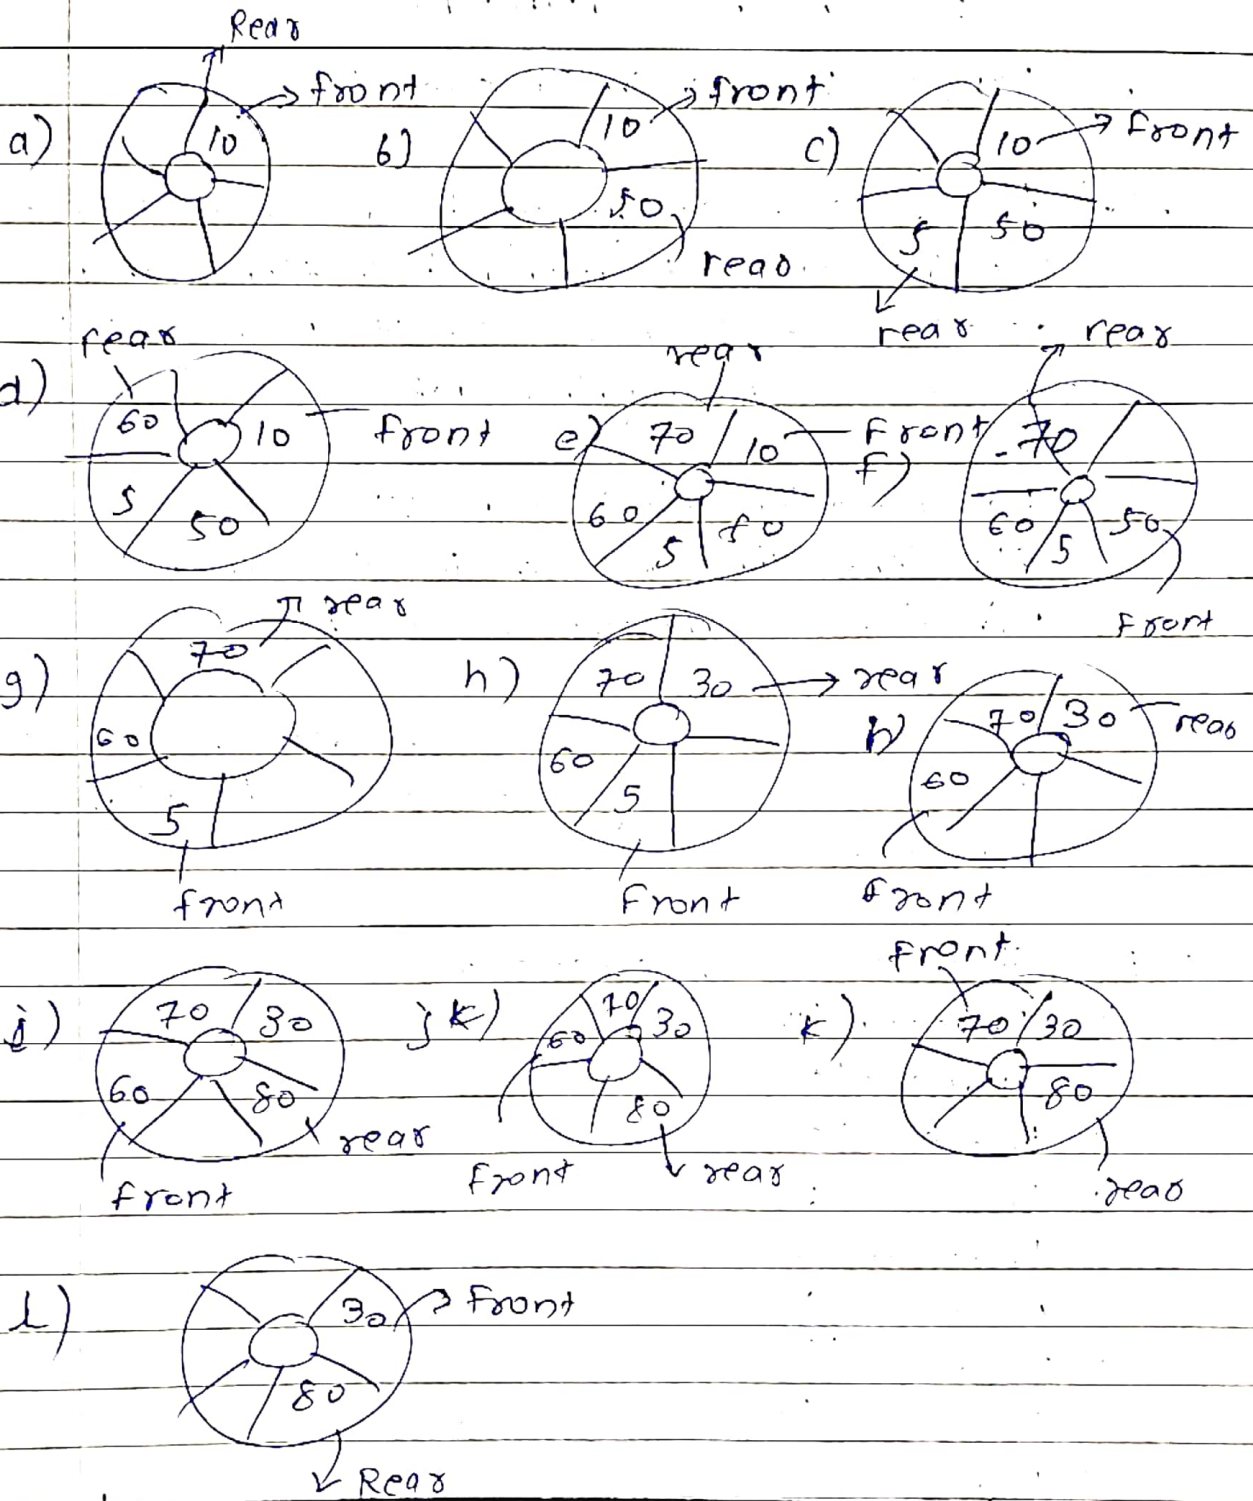 Rear
front
a) 10
b) 10 front
50
rear
c) 10 front
5 50
rear
d) rear
60 10 front
5 50
e) rear
70 10 Front
60 50
5
f) rear
70
60 5 50
Front
g) 70 rear
60
5
front
h) 70 30 rear
60
5
Front
70 30 rear
60
front
j) 70 30
60 80
rear
front
k) 70 30
60
80
front rear
k) front
70 30
80
rear
l) 30 front
80
Rear